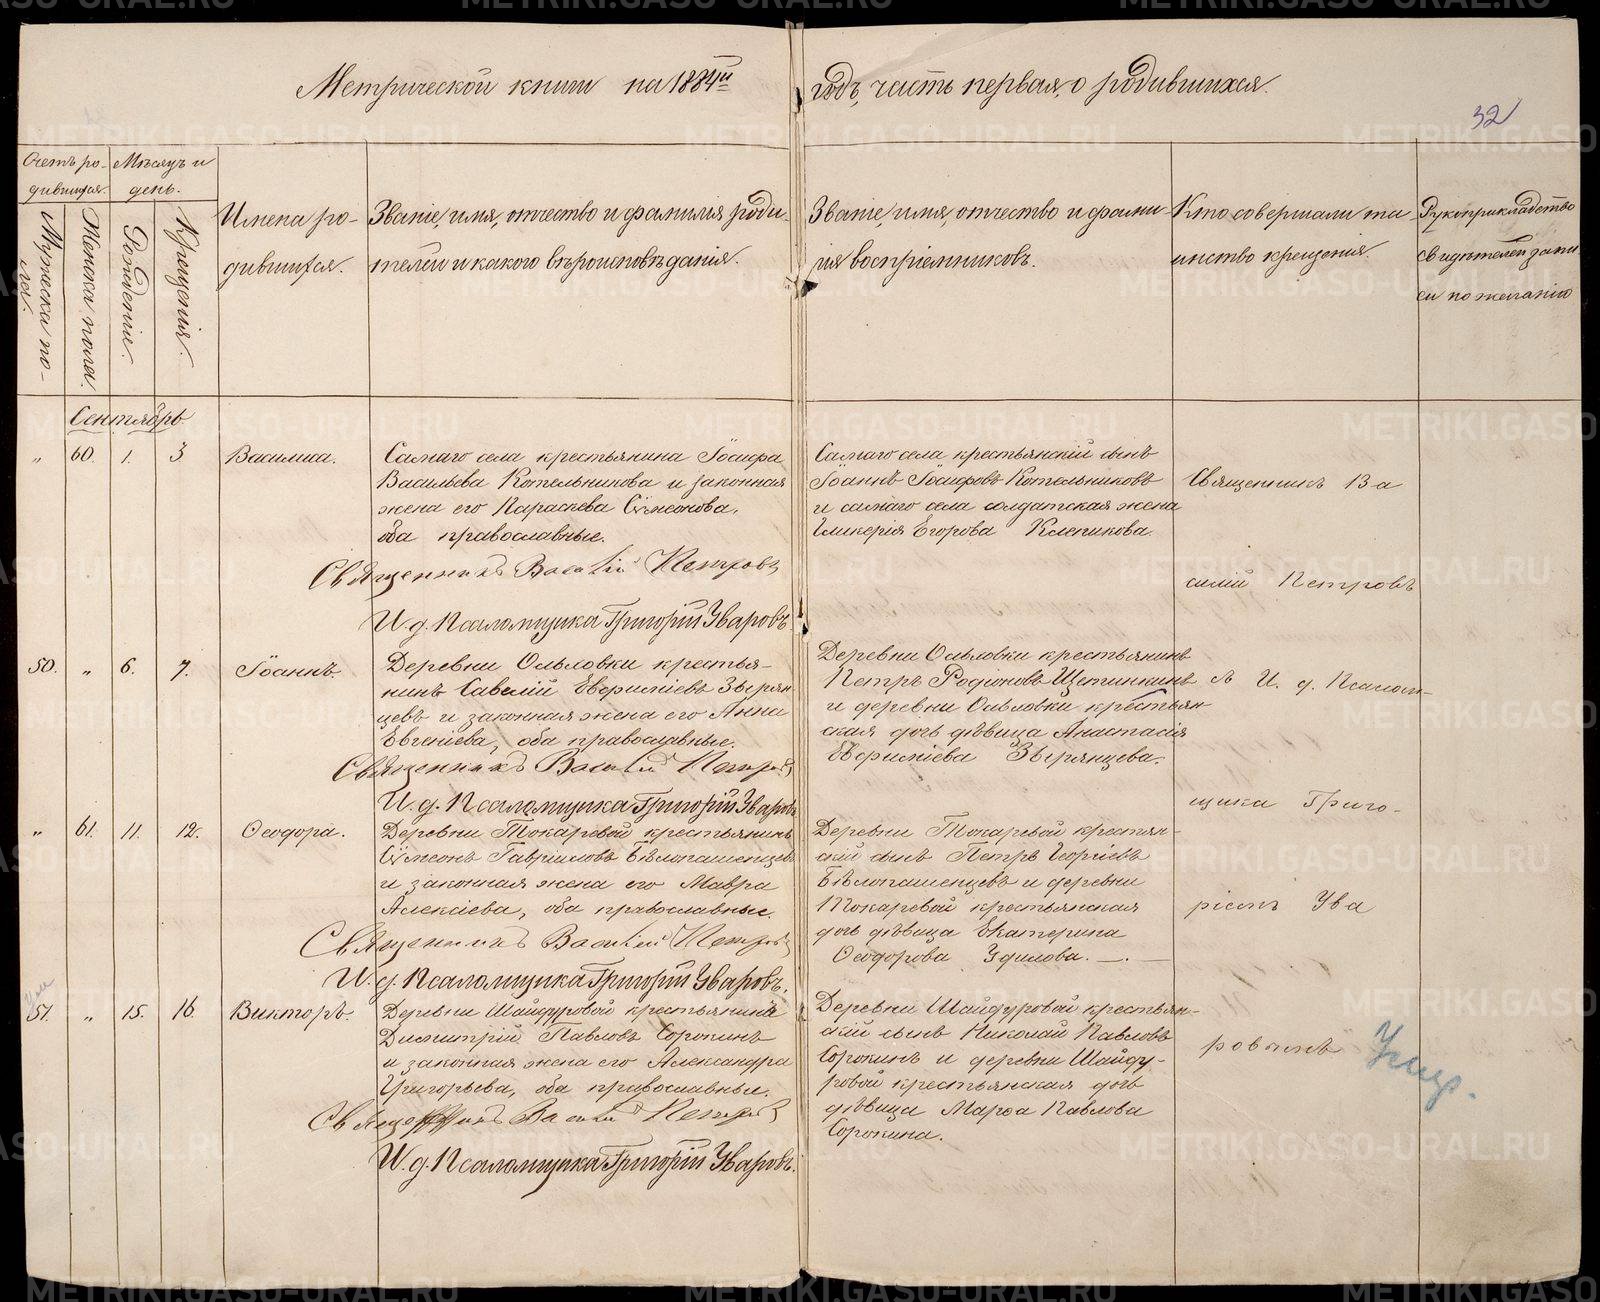 Метрической книги на 1884й годъ, часть первая, о родившихся.
32
Счетъ ро-
дившихся.
Мѣсяцъ и
день.
Мужеска по-
ла.
Женска пола.
Рожденія.
Крещенія.
Имена ро-
дившихся.
Званіе, имя, отчество и фамилія роди-
телей и какого вѣроисповѣданія.
Званіе, имя, отчество и фами-
лія воспріемниковъ.
Кто совершали та
инство крещенія.
Рукоприкладство
свидѣтелей запи
си по желанію
Сентябрь
„ 60. 1. 3 Василиса.
Самаго села крестьянина Іосифа
Васильева Котельникова и законная
жена его Параскева Сѵмеонова,
оба православные.
Священникъ Василій Петровъ
И. д. Псаломщика Григорій Уваровъ
Самаго села крестьянскій сынъ
Іоаннъ Іосифовъ Котельниковъ
и самаго села солдатская жена
Гликерія Егорова Клепикова.
Священникъ Ва
силій Петровъ
50. „ 6. 7. Іоаннъ.
Деревни Ольховки крестья-
нинъ Савелій Евфиміевъ Звѣрян
цевъ и законная жена его Анна
Евгеніева, оба православные.
Священникъ Василій Петровъ
И. д. Псаломщика Григорій Уваровъ
Деревни Ольховки крестьянинъ
Петръ Родіоновъ Щетинкинъ
и деревни Ольховки крестьян
ская дочь дѣвица Анастасія
Евфиміева Звѣрянцева.
съ И. д. Псалом-
щика Григо-
„ 61. 11. 12. Ѳеодора.
Деревни Токаревой крестьянинъ
Сѵмеонъ Гавріиловъ Бѣлопашенцевъ
и законная жена его Мавра
Алексіева, оба православные.
Священникъ Василій Петровъ
И. д. Псаломщика Григорій Уваровъ.
Деревни Токаревой крестьян-
скій сынъ Петръ Георгіевъ
Бѣлопашенцевъ и деревни
Токаревой крестьянская
дочь дѣвица Екатерина
Ѳеодорова Зуилова.
ріемъ Ува
51. „ 15. 16. Викторъ.
Деревни Шайдуровой крестьянинъ
Димитрій Павловъ Сорокинъ
и законная жена его Александра
Григорьева, оба православные.
Священникъ Василій Петровъ
И. д. Псаломщика Григорій Уваровъ.
Деревни Шайдуровой крестьян-
скій сынъ Николай Павловъ
Сорокинъ и деревни Шайду-
ровой крестьянская дочь
дѣвица Марѳа Павлова
Сорокина.
ровымъ
Умер.
METRIKI.GASO-URAL.RU